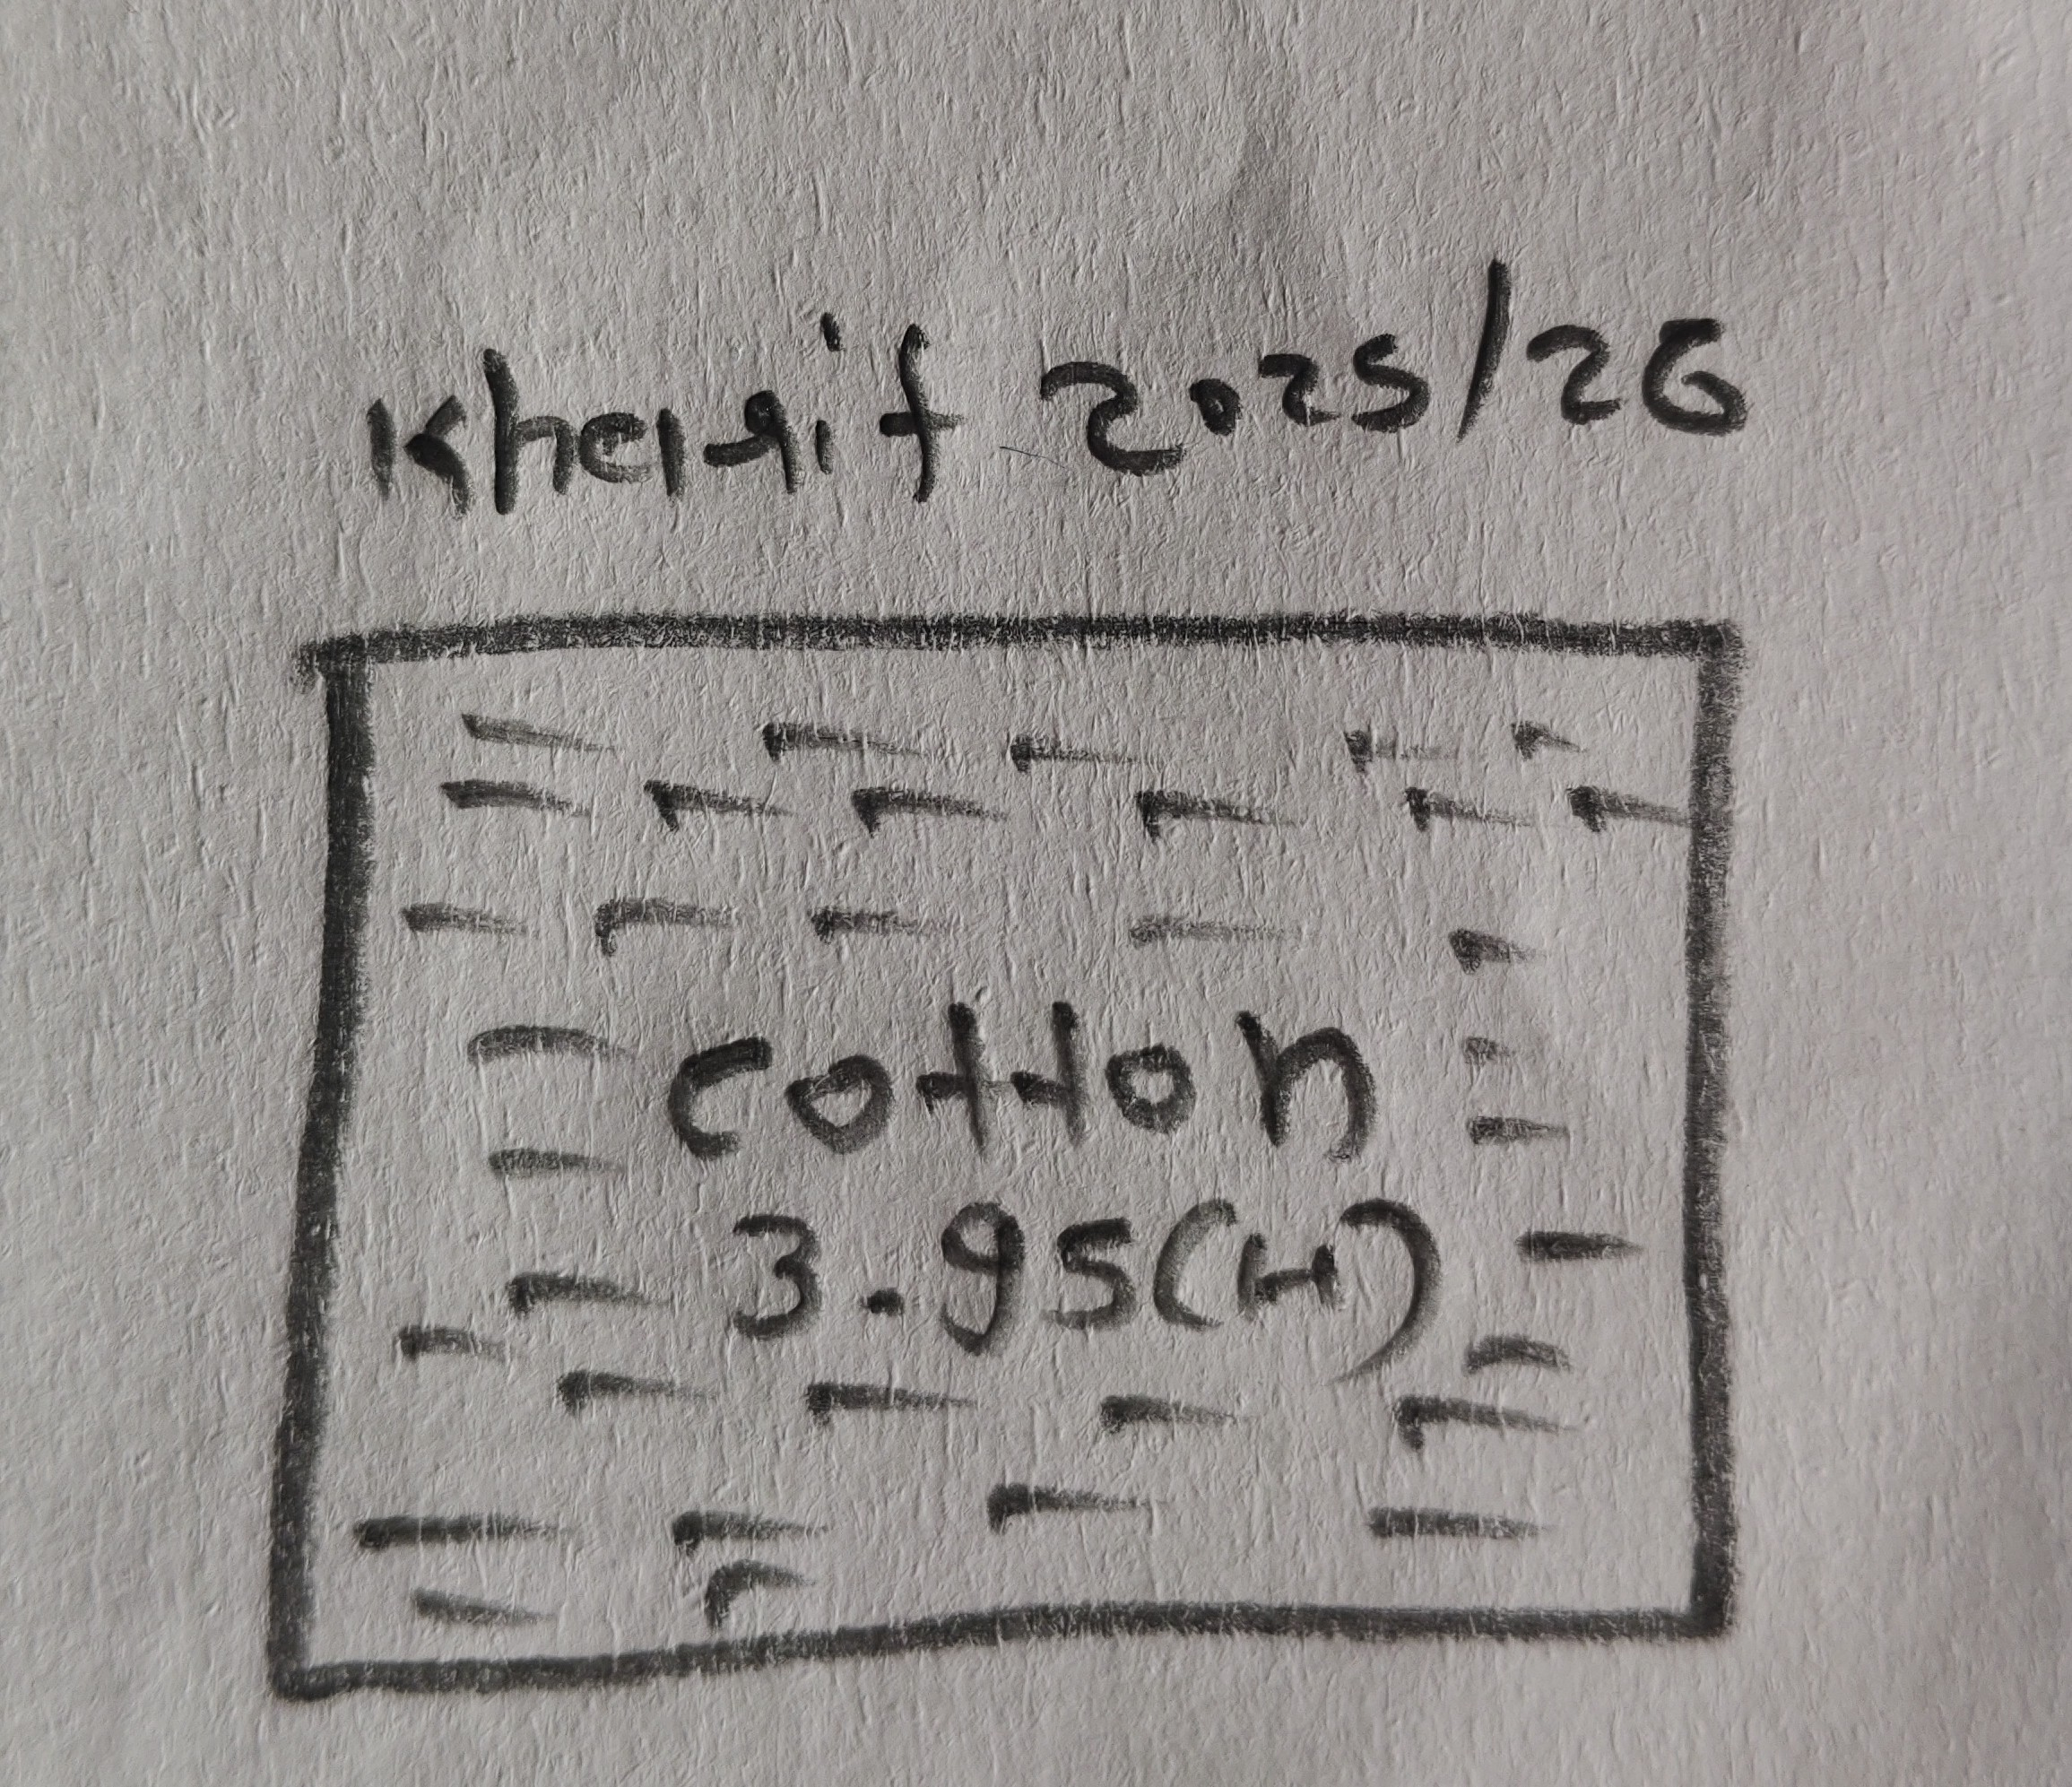 Kharif 2025/26
cotton
3.95(H)